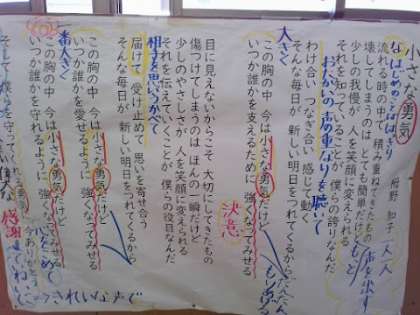 小さな勇気
はじめ はっきり
流れる時の中で 積み重ねてきたもの
壊してしまうのは とても簡単だけど
少しの我慢が 人を笑顔に変えられる
それを知っていることが 僕らの誇りなんだ
おたがいの声の重なりを聴いて
わけ合い つなぎ合い 感じて動く
そんな毎日が 新しい明日をつれてくるから
だんだん
もりあげる
大きく
この胸の中 今は小さな勇気だけど
いつか誰かを支えるために 強くなってみせる
決意
目に見えないからこそ 大切にしてきたもの
傷つけてしまうのは ほんの一瞬だけど
少しのやさしさが 人を笑顔に変えられる
それを伝えていくことが 僕らの役目なんだ
相手を思いうかべ
届けて 受け止め 思いを寄せ合う
そんな毎日が 新しい明日をつれてくるから
一番大きく
この胸の中 今は小さな勇気だけど
いつか誰かを愛せるように 強くなってみせる
この胸の中 今は小さな勇気だけど
いつか誰かを守れるように 強くなってみせる
そして 僕らを守って
今ありがとう
感謝
きれいな声で